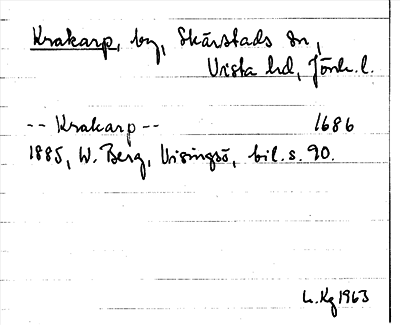 Krakarp, by, Skärstads sn,
Vista hd, Jönk. l.
-- Krakarp -- 1686
1885, W. Berg, Visingsö, bil. s. 90.
L. Kg 1963